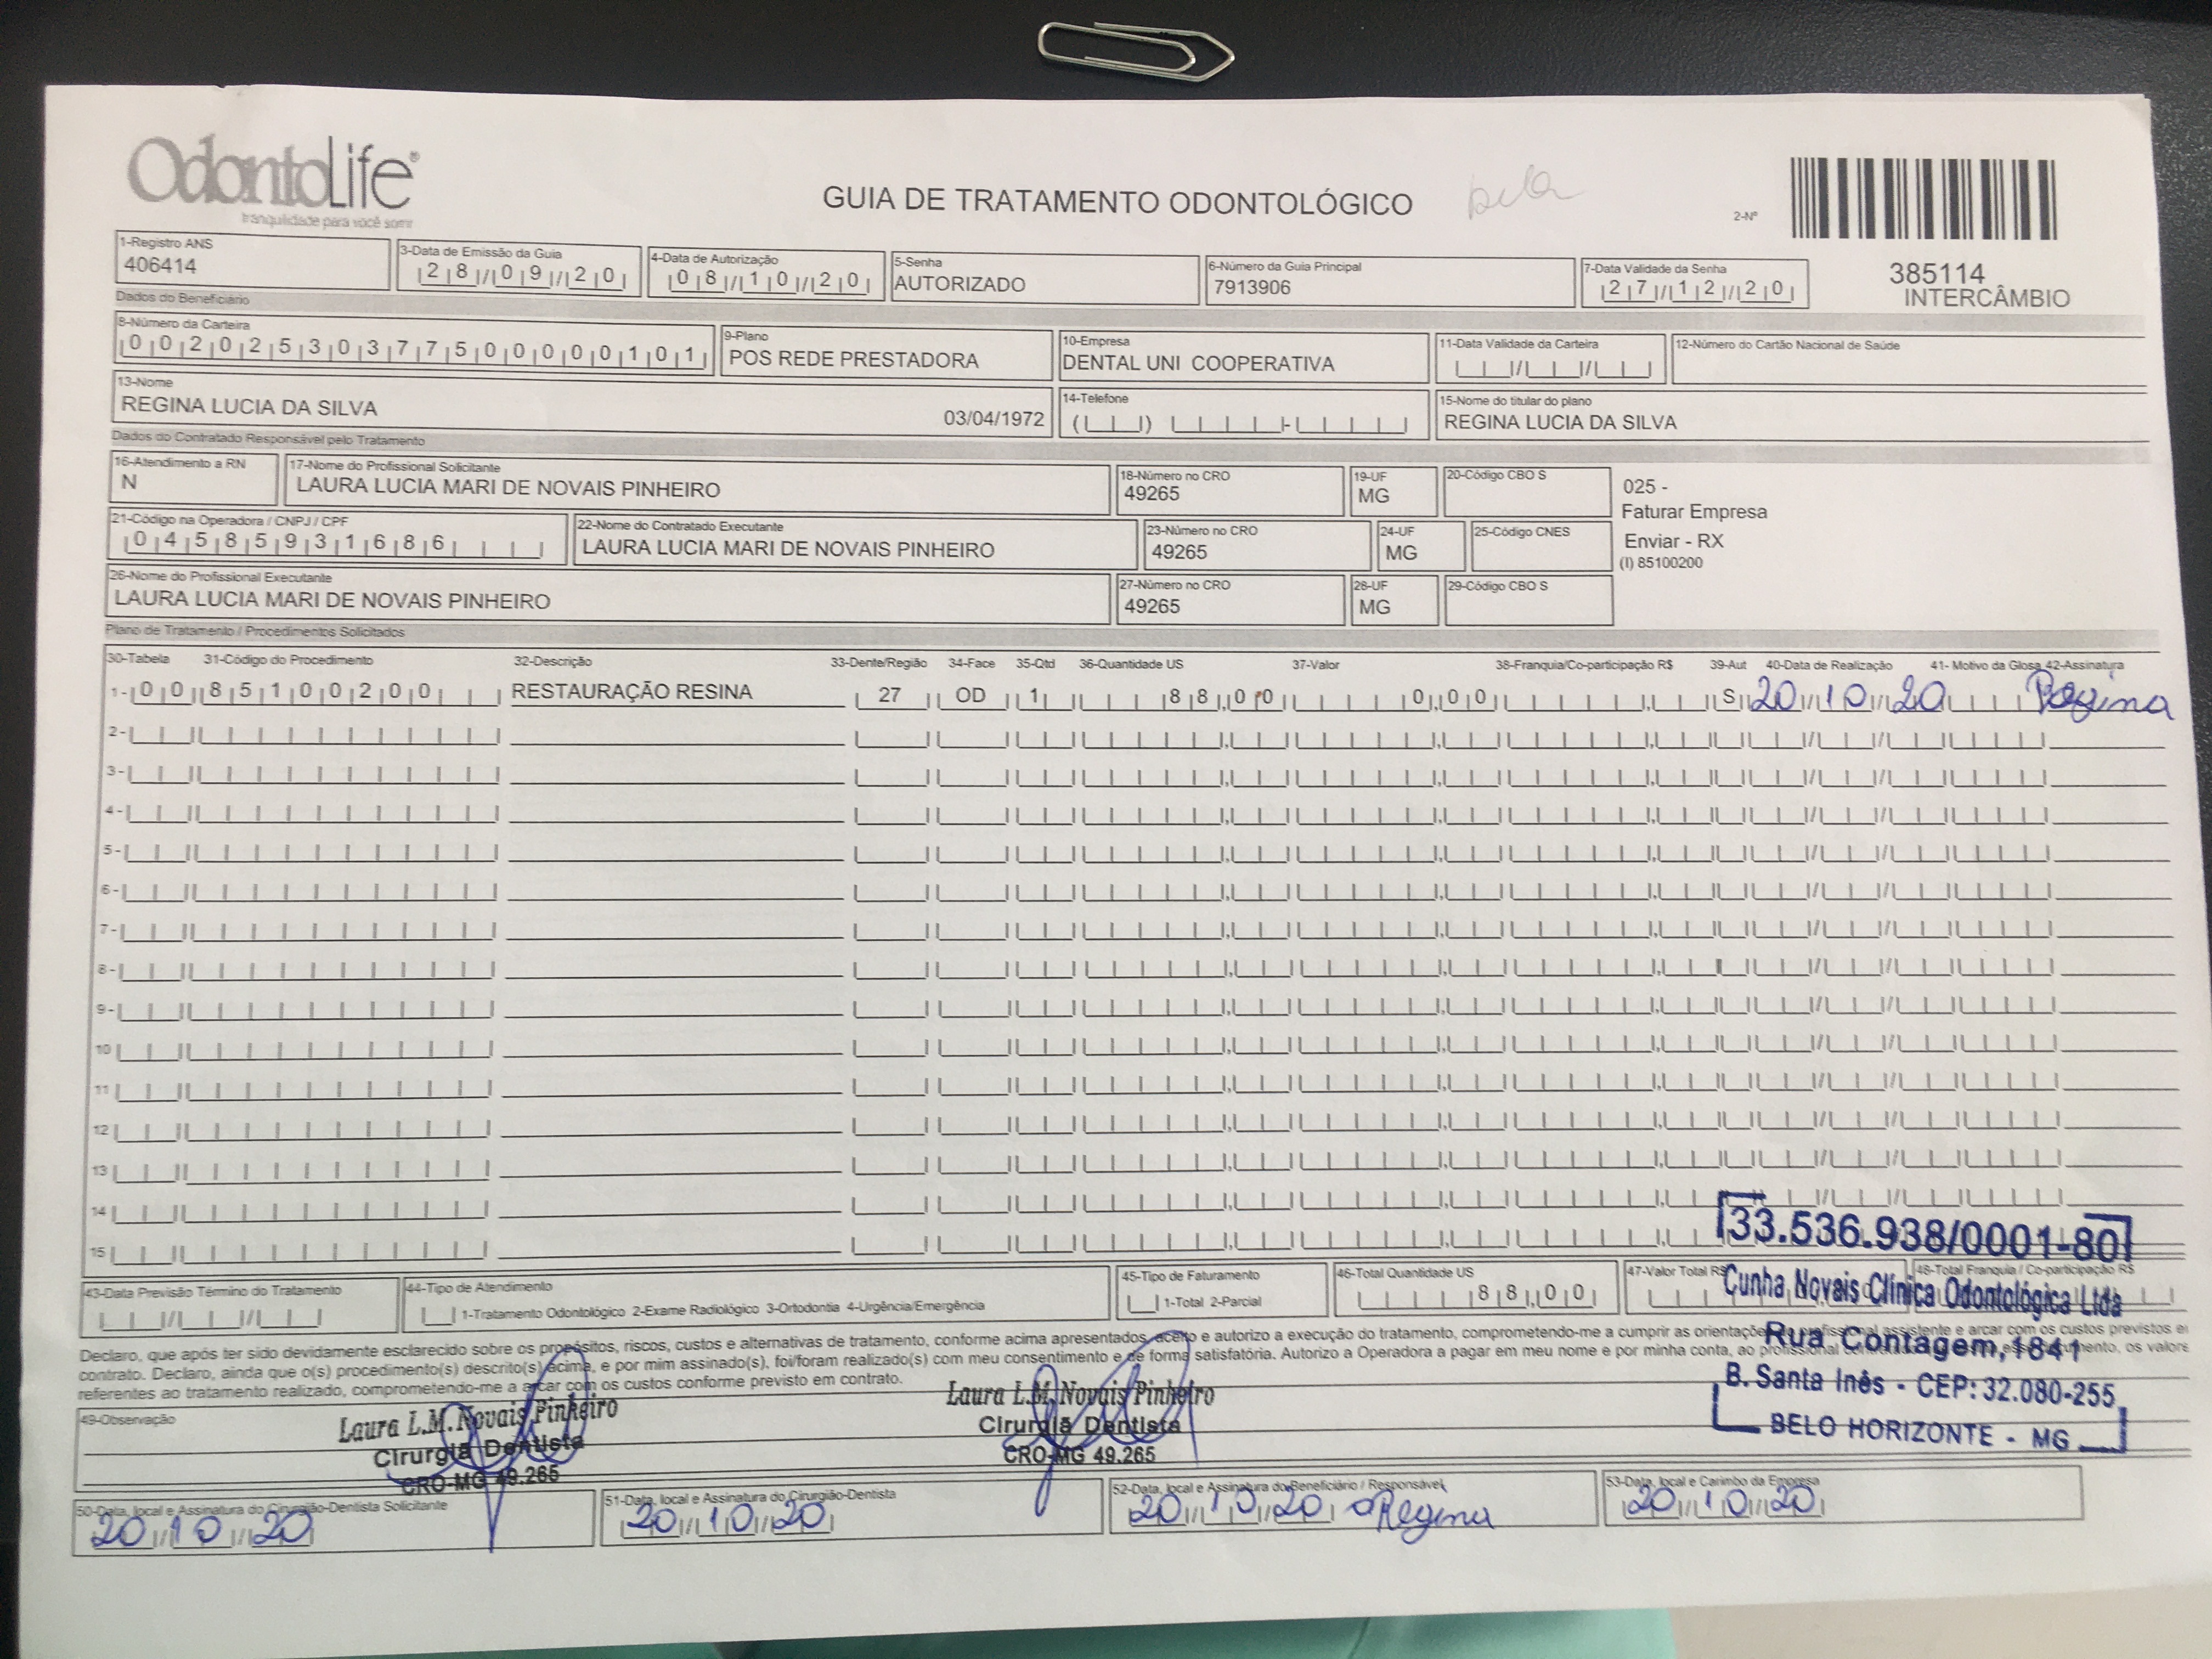 OdontoLife®
tranquilidade para você sorrir
GUIA DE TRATAMENTO ODONTOLÓGICO
2-Nº
385114
INTERCÂMBIO
1-Registro ANS
406414
3-Data de Emissão da Guia
28/09/20
4-Data de Autorização
08/10/20
5-Senha
AUTORIZADO
6-Número da Guia Principal
7913906
7-Data Validade da Senha
27/12/20
Dados do Beneficiário
8-Número da Carteira
00202530377500000101
9-Plano
POS REDE PRESTADORA
10-Empresa
DENTAL UNI COOPERATIVA
11-Data Validade da Carteira
12-Número do Cartão Nacional de Saúde
13-Nome
REGINA LUCIA DA SILVA 03/04/1972
14-Telefone
15-Nome do titular do plano
REGINA LUCIA DA SILVA
Dados do Contratado Responsável pelo Tratamento
16-Atendimento a RN
N
17-Nome do Profissional Solicitante
LAURA LUCIA MARI DE NOVAIS PINHEIRO
18-Número no CRO
49265
19-UF
MG
20-Código CBO S
025 -
Faturar Empresa
Enviar - RX
(I) 85100200
21-Código na Operadora / CNPJ / CPF
04585931686
22-Nome do Contratado Executante
LAURA LUCIA MARI DE NOVAIS PINHEIRO
23-Número no CRO
49265
24-UF
MG
25-Código CNES
26-Nome do Profissional Executante
LAURA LUCIA MARI DE NOVAIS PINHEIRO
27-Número no CRO
49265
28-UF
MG
29-Código CBO S
Plano de Tratamento / Procedimentos Solicitados
30-Tabela 31-Código do Procedimento 32-Descrição 33-Dente/Região 34-Face 35-Qtd 36-Quantidade US 37-Valor 38-Franquia/Co-participação R$ 39-Aut 40-Data de Realização 41- Motivo da Glosa 42-Assinatura
1- 00 85100200 RESTAURAÇÃO RESINA 27 OD 1 88,00 0,00 S 20/10/20 Regina
2-
3-
4-
5-
6-
7-
8-
9-
10
11
12
13
14
15
33.536.938/0001-80
Cunha Novais Clínica Odontológica Ltda
Rua Contagem, 1841
B. Santa Inês - CEP: 32.080-255
BELO HORIZONTE - MG
43-Data Previsão Término do Tratamento
44-Tipo de Atendimento
1-Tratamento Odontológico 2-Exame Radiológico 3-Ortodontia 4-Urgência/Emergência
45-Tipo de Faturamento
1-Total 2-Parcial
46-Total Quantidade US
88,00
47-Valor Total R$
48-Total Franquia / Co-participação R$
Declaro, que após ter sido devidamente esclarecido sobre os propósitos, riscos, custos e alternativas de tratamento, conforme acima apresentados, aceito e autorizo a execução do tratamento, comprometendo-me a cumprir as orientações assistente e arcar com os custos previstos
contrato. Declaro, ainda que o(s) procedimento(s) descrito(s) acima, e por mim assinado(s), foi/foram realizado(s) com meu consentimento e de forma satisfatória. Autorizo a Operadora a pagar em meu nome e por minha conta, ao profissional os valores
referentes ao tratamento realizado, comprometendo-me a arcar com os custos conforme previsto em contrato.
49-Observação
Laura L.M. Novais Pinheiro
Cirurgiã Dentista
CRO-MG 49.265
Laura L.M. Novais Pinheiro
Cirurgiã Dentista
CRO-MG 49.265
50-Data, local e Assinatura do Cirurgião-Dentista Solicitante
20/10/20
51-Data, local e Assinatura do Cirurgião-Dentista
20/10/20
52-Data, local e Assinatura do Beneficiário / Responsável
20/10/20 Regina
53-Data, local e Carimbo da Empresa
20/10/20